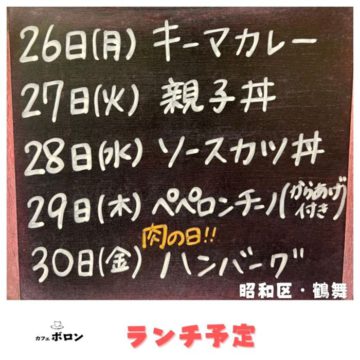 26日(月) キーマカレー
27日(火) 親子丼
28日(水) ソースカツ丼
29日(木) ペペロンチーノ(からあげ付き)
肉の日!!
30日(金) ハンバーグ
昭和区・鶴舞
カフェ ボロン
ランチ予定